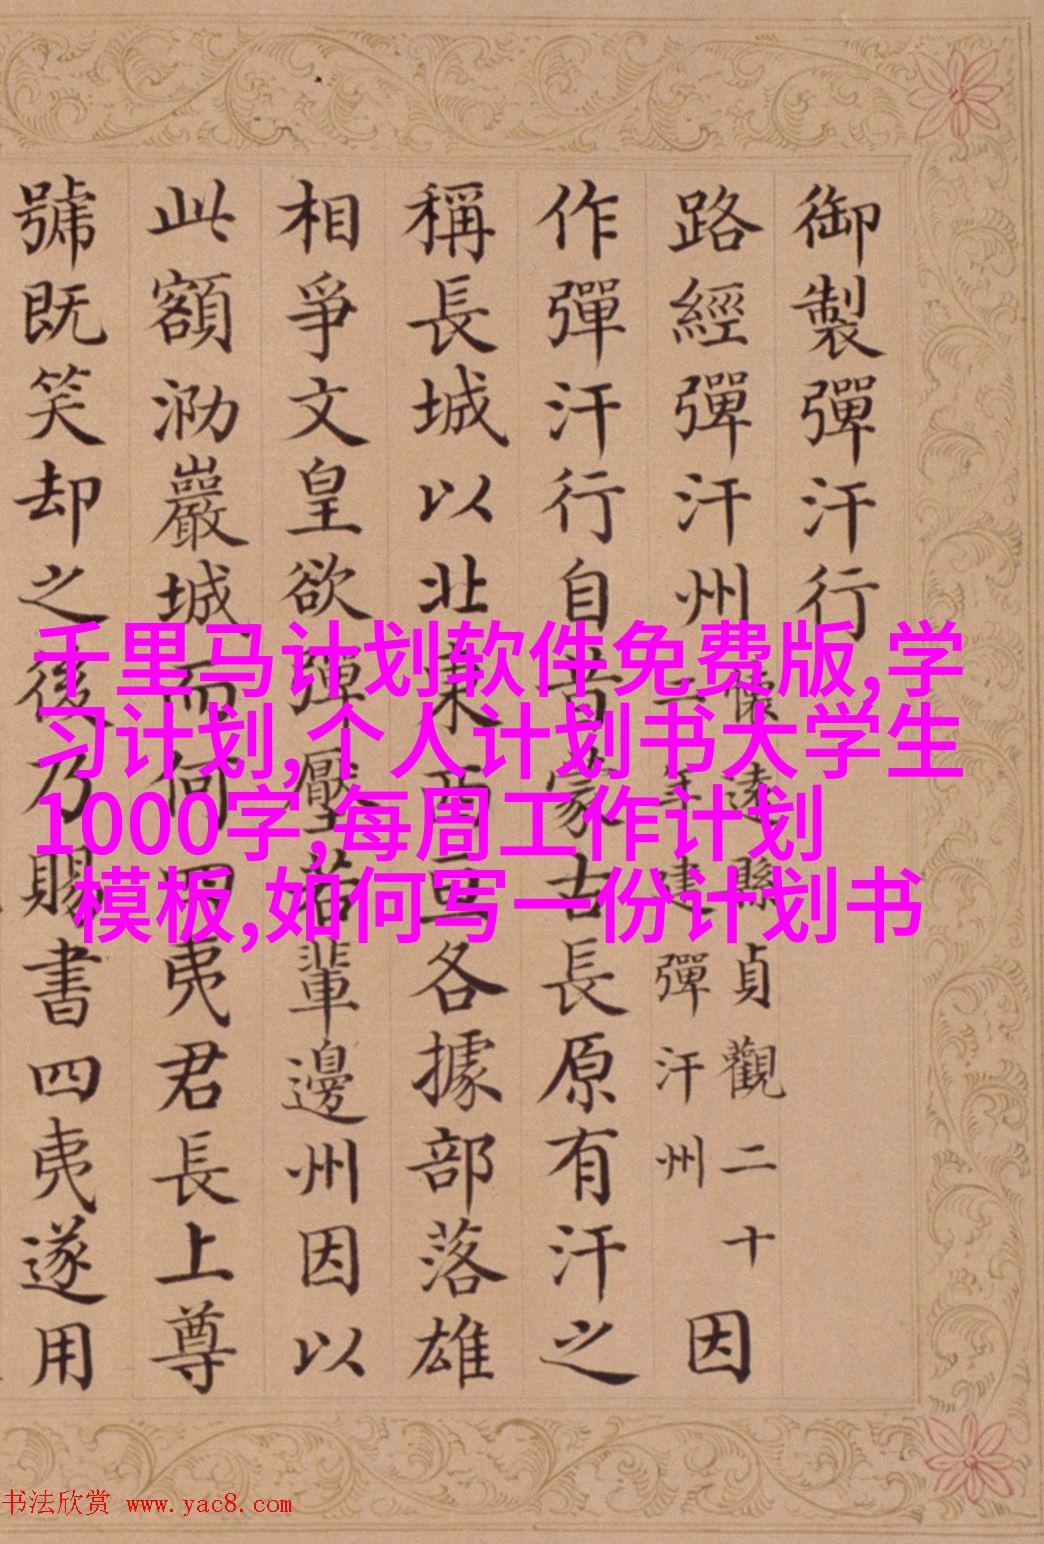 御製彈汗行
路經彈汗州
懷遠縣貞觀二十
年建彈汗州
因
作彈汗行自昔蒙古長原有汗之
稱長城以北東西亘各據部落雄
相爭文皇欲彈壓若輩邊州因以
此額泐巖城而何四夷君長上尊
號既笑却之後乃賜書四夷遂用
千里马计划软件免费版,学
习计划,个人计划书大学生
1000字,每周工作计划
模板,如何写一份计划书
书法欣赏 www.yac8.com